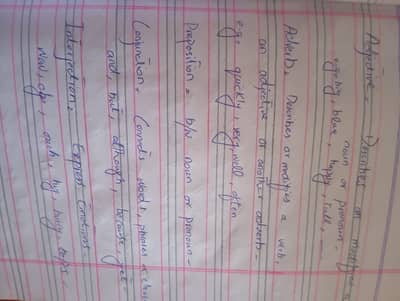 Adjective - Describes or modifies
noun or pronoun -
e.g. big, blue, happy, tall,
Adverb - Describes or modifies a verb,
an adjective or another adverb -
e.g. quickly, very, well, often
Preposition = b/w noun or pronoun -
Conjunction - Connects words, phrases
and, but, although, because, yet
Interjection - Express Emotions
Wow, ouch, hey,